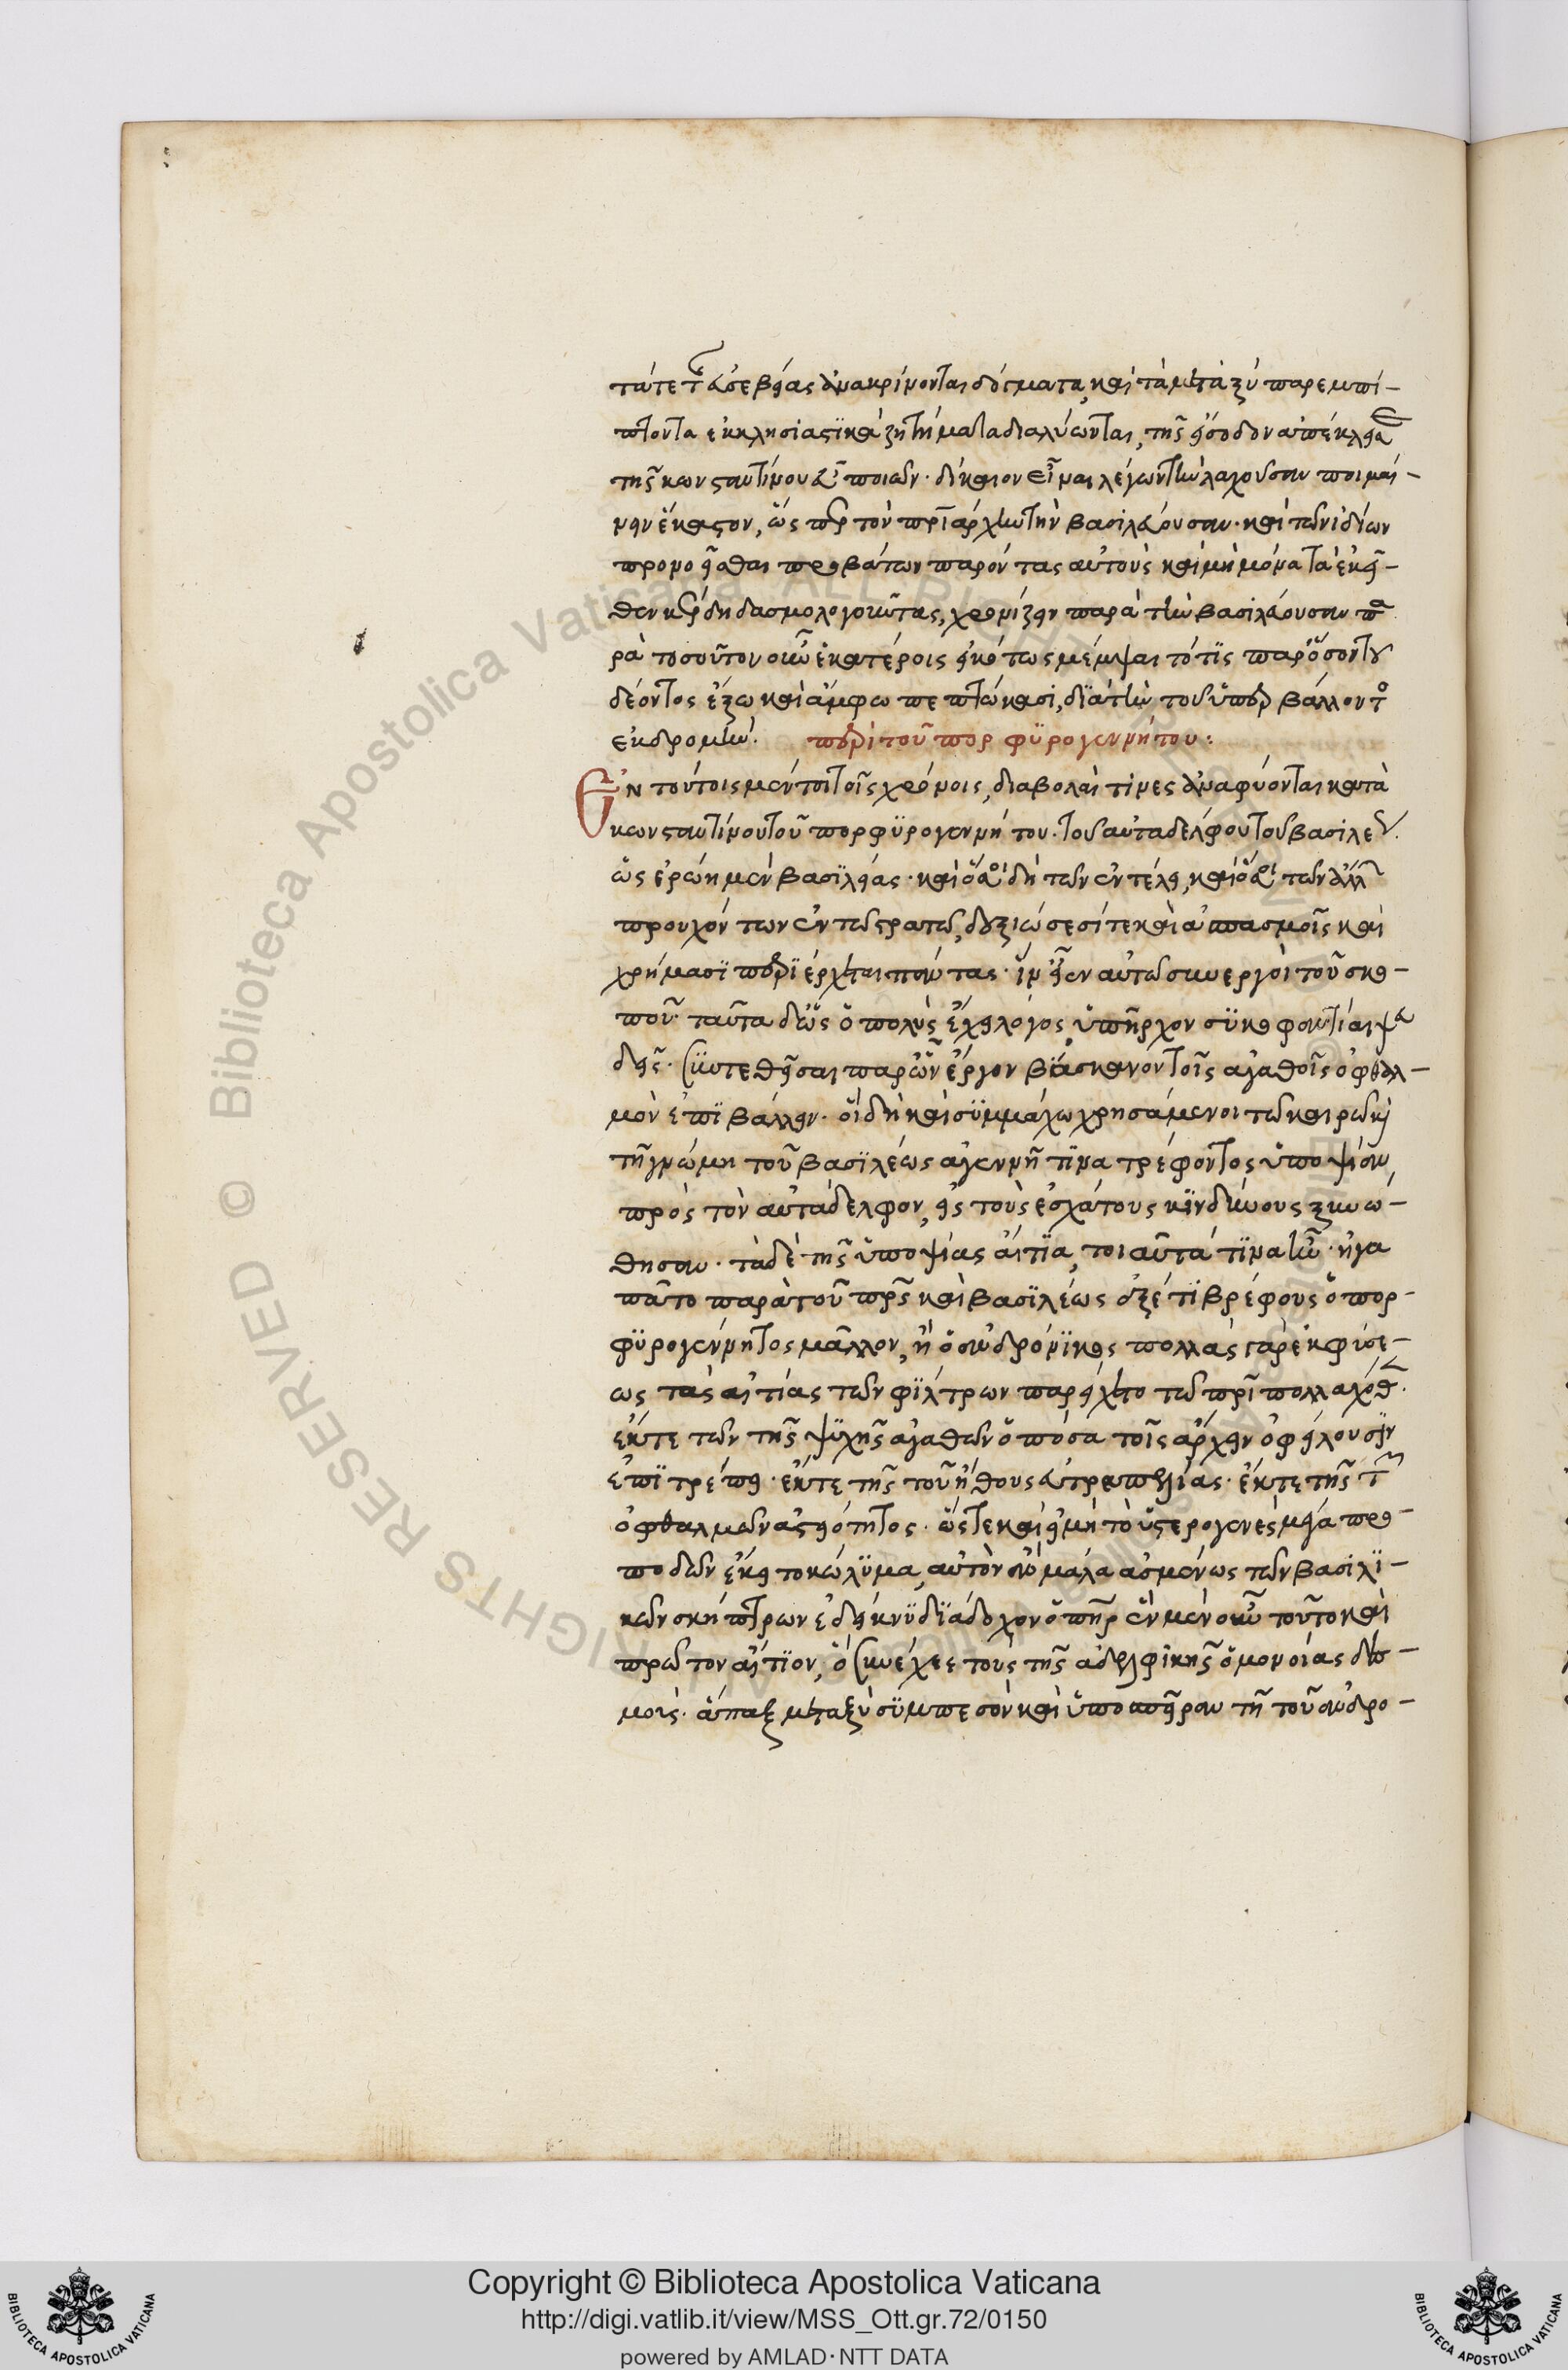 τά τε τῆς εὐσεβείας ἀνακρίνονται δόγματα, καὶ τὰ μεταξὺ παρεμπί-
πτοντα ἐκκλησιαστικὰ ζητήματα διαλύωνται, τῆς εἰσόδου ἀπέκλεισε
τῆς κωνσταντίνου ποιῶν· δίκαιον εἶναι λέγων τὴν λαχοῦσαν ποιμαί-
νειν ἕκαστον, ὥσπερ τὸν πατριάρχην τὴν βασιλεύουσαν· καὶ τῶν ἰδίων
προνοεῖσθαι προβάτων παρόντας αὐτοὺς καὶ μὴ μόνα τὰ ἐκεῖ-
θεν κέρδη δασμολογοῦντας, χρονίζειν παρὰ τὴν βασιλεύουσαν πα
ρὰ τοσοῦτον οὖν ἑκατέροις εἰκότως μέμψαιτό τις παρ' ὅσον τοῦ
δέοντος ἔξω καὶ ἄμφω πεπτώκασι, διὰ τὴν τοῦ ὑπερβάλλοντος
ἐκδρομήν. περὶ τοῦ πορφυρογεννήτου:
Ἐν τούτοις μέντοι τοῖς χρόνοις, διαβολαί τινες ἀναφύονται κατὰ
κωνσταντίνου τοῦ πορφυρογεννήτου. τοῦ αὐταδέλφου τοῦ βασιλέως.
ὡς ἐρώη μὲν βασιλείας· καὶ ὅσοι δὴ τῶν ἐν τέλει, καὶ ὅσοι τῶν ἄλλων
προυχόντων ἐν τῷ στρατῷ, δεξιώσεσί τε καὶ ἀσπασμοῖς καὶ
χρήμασι περιέρχεται πάντας· ἵν' εἶεν αὐτῷ συνεργοὶ τοῦ σκο-
ποῦ· ταῦτα δὲ ὡς ὁ πολὺς ἔχει λόγος, ὑπῆρχον συκοφαντίαι ψευ
δεῖς· συντεθεῖσαι παρ' ὧν ἔργον βάσκανον τοῖς ἀγαθοῖς ὀφθαλ-
μὸν ἐπιβάλλειν· οἳ δὴ καὶ συμμάχω χρησάμενοι τῷ καιρῷ καὶ
τῇ γνώμη τοῦ βασιλέως ἀγεννῆ τινα τρέφοντος ὑποψίαν
πρὸς τὸν αὐτάδελφον, εἰς τοὺς ἐσχάτους κινδύνους ξυνώ-
θησαν· τὰ δὲ τῆς ὑποψίας αἴτια, τοιαῦτά τινα ἦν· ἠγα
πᾶτο παρὰ τοῦ πατρὸς καὶ βασιλέως ἐξέτι βρέφους ὁ πορ-
φυρογέννητος μᾶλλον, ἢ ὁ ἀνδρόνικος πολλὰς γὰρ ἐκ φύσε-
ως τὰς αἰτίας τῶν φίλτρων παρείχετο τῷ πατρὶ πολλαχόθεν.
ἔκ τε τῶν τῆς ψυχῆς ἀγαθῶν ὁπόσα τοῖς ἄρχειν ὀφείλουσιν
ἐπιτρέπει· ἔκ τε τῆς τοῦ ἤθους εὐτραπελίας· ἔκ τε τῆς τῶν
ὀφθαλμῶν ἀστειότητος· ὥστε καὶ εἰ μὴ τὸ ὑστερογενὲς μεῖα προ-
ποδῶν ἔκειτο κώλυμα, αὐτὸν ἂν μάλα ἀσμένως τῶν βασιλι-
κῶν σκήπτρων ἐδείκνυ διάδοχον ὁ πατήρ ἓν μὲν οὖν τοῦτο καὶ
πρῶτον αἴτιον, ὃ συνέχεε τοὺς τῆς ἀδελφικῆς ὁμονοίας δε-
μούς· ἅπαξ μεταξὺ συμπεσὸν καὶ ὑποσπεῖραν τῇ τοῦ ἀνδρο-
Copyright © Biblioteca Apostolica Vaticana
http://digi.vatlib.it/view/MSS_Ott.gr.72/0150
powered by AMLAD·NTT DATA